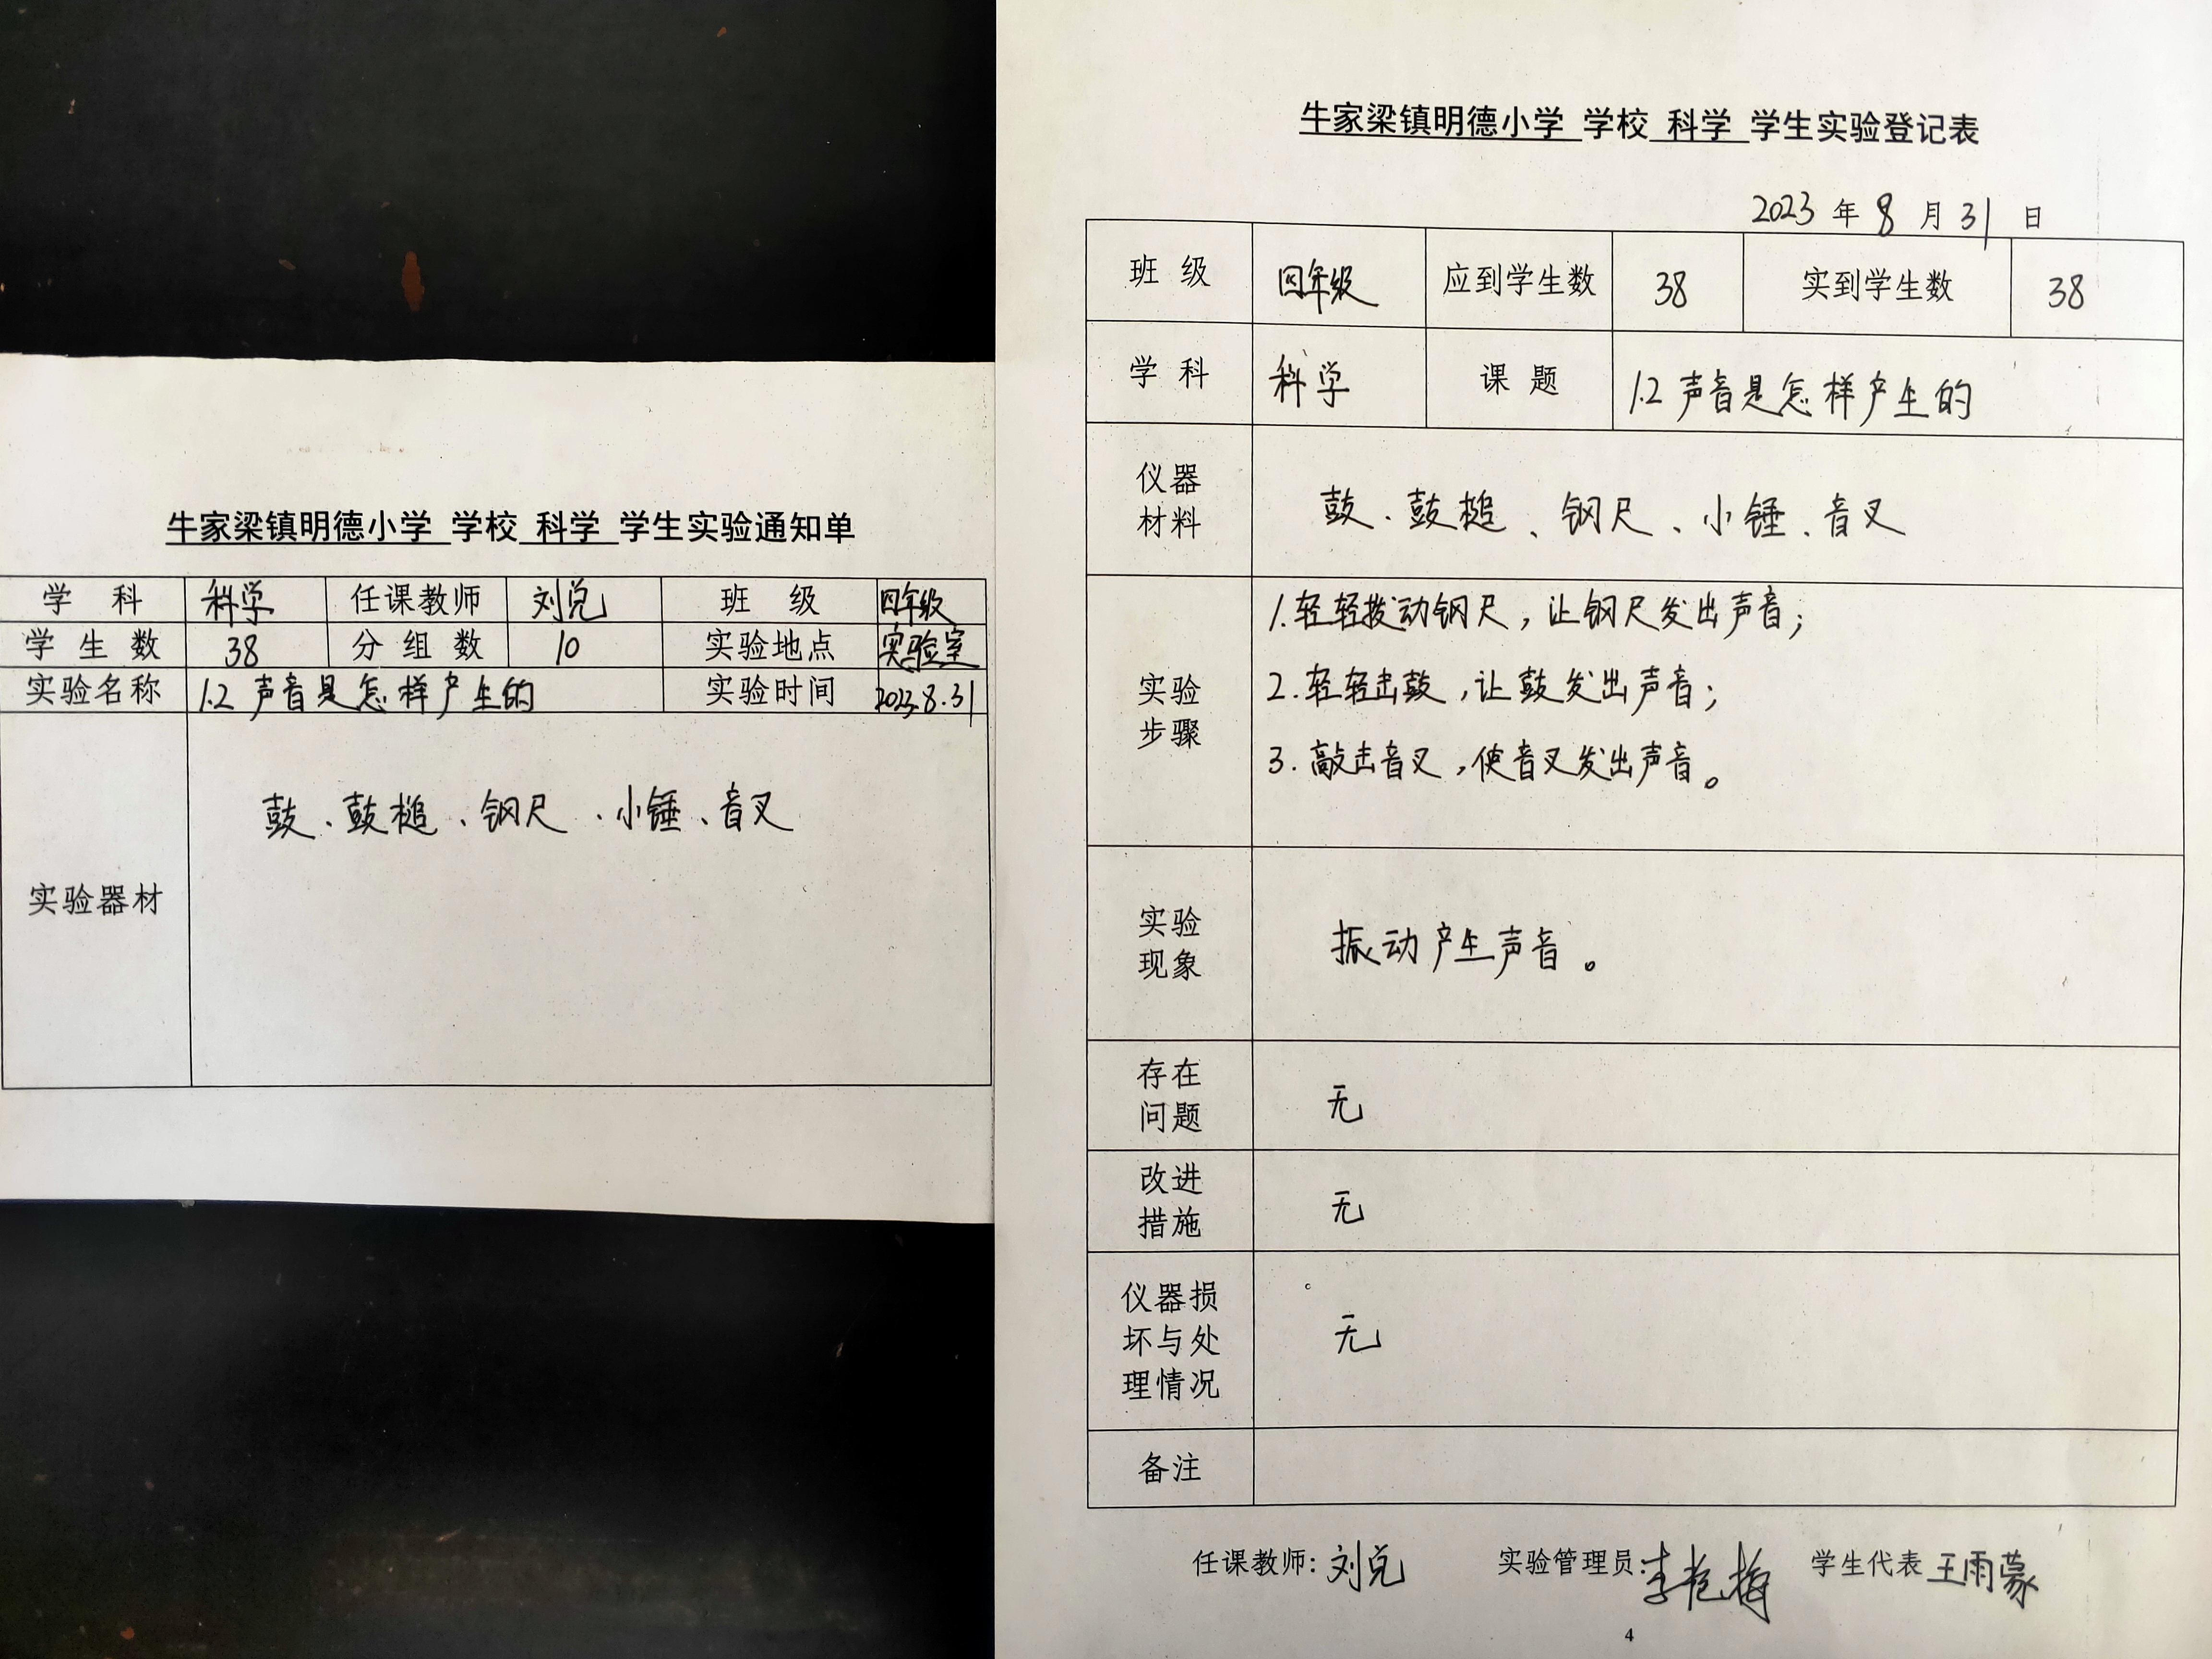 牛家梁镇明德小学 学校 科学 学生实验通知单
学 科 科学 任课教师 刘兑 班 级 四年级
学 生 数 38 分 组 数 10 实验地点 实验室
实验名称 1.2 声音是怎样产生的 实验时间 2023.8.31
实验器材 鼓、鼓槌、钢尺、小锤、音叉
牛家梁镇明德小学 学校 科学 学生实验登记表
2023 年 8 月 31 日
班 级 四年级 应到学生数 38 实到学生数 38
学 科 科学 课 题 1.2 声音是怎样产生的
仪器
材料
鼓、鼓槌、钢尺、小锤、音叉
实验
步骤
1.轻轻拨动钢尺,让钢尺发出声音;
2.轻轻击鼓,让鼓发出声音;
3.敲击音叉,使音叉发出声音。
实验
现象
振动产生声音。
存在
问题
无
改进
措施
无
仪器损
坏与处
理情况
无
备注
任课教师:刘兑 实验管理员:李艳梅 学生代表 王雨蒙
4